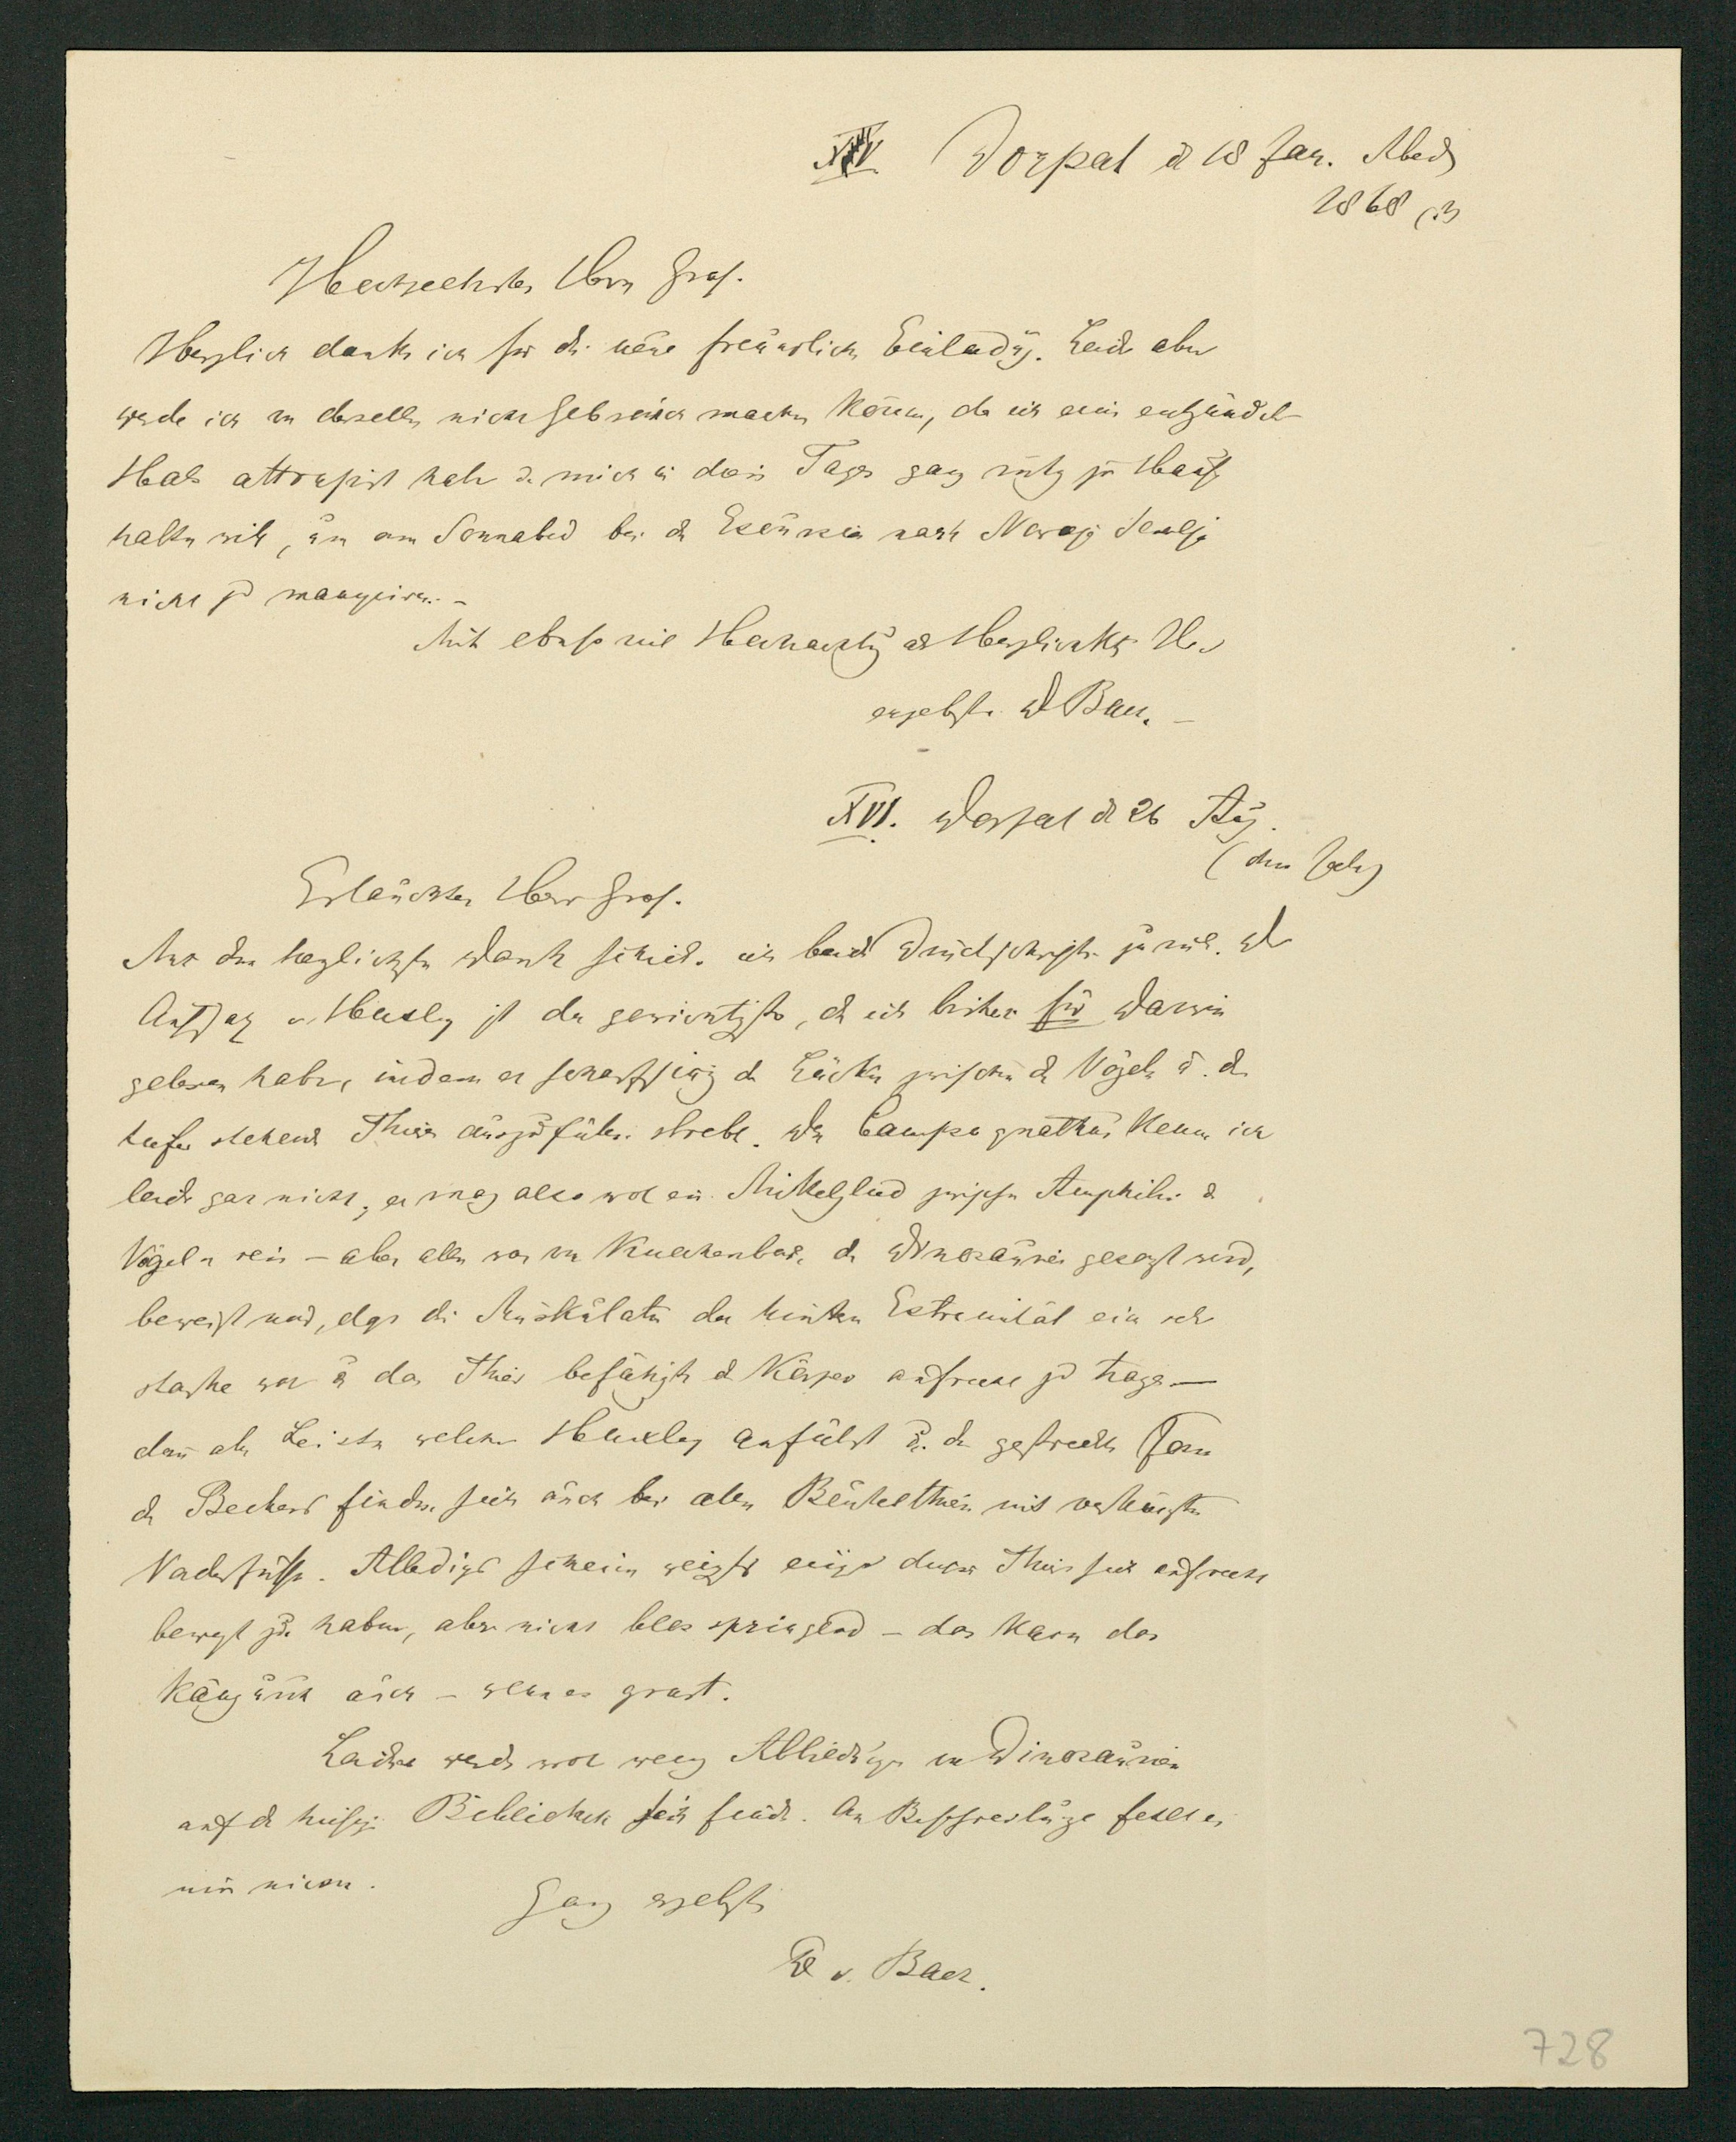 XV Dorpat d 18 Jan. Abends
1868 (?)
Hochgeehrter Herr Graf.
Herzlich danke ich für die neue freundliche Einladung. Leider aber
werde ich von derselben nicht Gebrauch machen können, da ich einen entzündeten
Hals attrapirt habe u. mich in diesen Tagen ganz ruhig zu Hause
halten will, um am Sonnabend bei der Excursion nach Novaja Semlja
nicht zu manquiren. –
Mit ebenso viel Hochachtung als Herzlichkeit Ihr
ergebenster D Baer. –
XVI. Dorpat d 26 Aug.
(ohne Jahr)
Erlauchter Herr Graf.
Mit dem herzlichsten Dank schicke ich beide Druckschriften zurück. Der
Aufsatz v. Huxley ist der gewichtigste, den ich bisher für Darwin
gelesen habe, indem er scharfsinnig die Lücke zwischen den Vögeln u. den
tiefer stehenden Thieren auszufüllen strebt. Den Compsognathus kenne ich
leider gar nicht, er mag also wol ein Mittelglied zwischen Amphibien u
Vögeln sein – aber alles was vom Knochenbau der Dinosaurier gesagt wird,
beweist nur, dass die Muskulatur der hintern Extremität eine sehr
starke war u das Thier befähigte den Körper aufrecht zu tragen –
denn alle Leisten welche Huxley anführt u. die gestreckte Form
des Beckens finden sich auch bei allen Beutelthieren mit verkürzten
Vorderfüssen. Allerdings scheinen wenigstens einige dieser Thiere sich aufrecht
bewegt zu haben, aber nicht blos springend – das kann das
Känguruh auch – wenn es grast.
Leider werden wol wenig Abbildungen von Dinosauriern
auf der hiesigen Bibliothek sich finden. An Beuteltiere fehlt es
mir nicht.
Ganz ergebenster
E v. Baer.
728